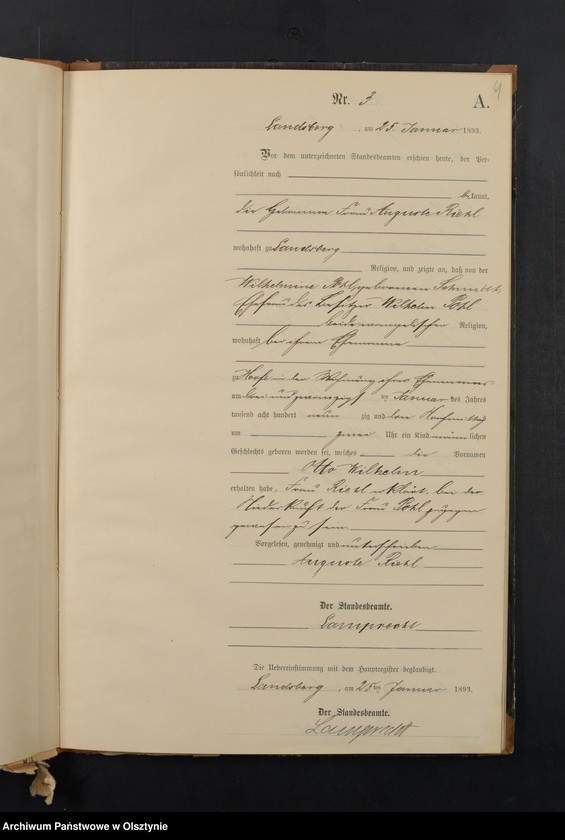 4
Nr. 3 A.
Landsberg, am 25. Januar 1893.
Vor dem unterzeichneten Standesbeamten erschien heute, der Per-
sönlichkeit nach
bekannt,
die Hebamme Frau Auguste Riehl
wohnhaft zu Landsberg
Religion, und zeigte an, daß von der
Wilhelmine Pohl, geborenen Schmidt,
Ehefrau des Besitzer Wilhelm Pohl
beide evangelischer Religion,
wohnhaft bei ihrem Ehemanne
zu in der Wohnung ihres Ehemannes
am drei und zwanzigsten Januar des Jahres
tausend acht hundert neun zig und drei Nachmittag
um zwei Uhr ein Kind männlichen
Geschlechts geboren worden sei, welches die Vornamen
Otto Wilhelm
erhalten habe. Frau Riehl erklärt, bei der
Niederkunft der Frau Pohl zugegen
gewesen zu sein.
Vorgelesen, genehmigt und unterschrieben
Auguste Riehl
Der Standesbeamte.
Lamprecht
Die Uebereinstimmung mit dem Hauptregister beglaubigt.
Landsberg, am 25ten Januar 1893.
Der Standesbeamte.
Lamprecht
Archiwum Państwowe w Olsztynie